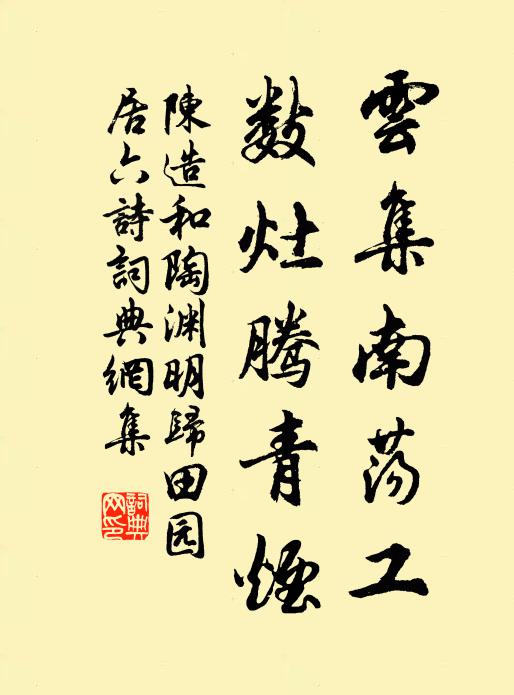 雲集南荡工
数灶腾青煙
陳造和陶渊明歸田园
居六詩詞典網集
詞典
网印